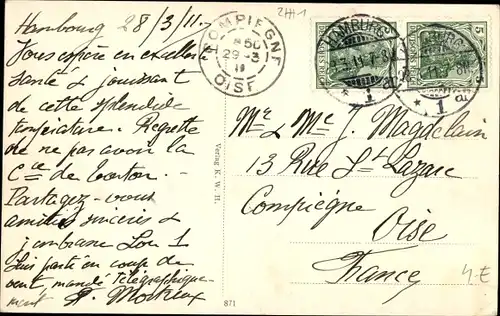 Hambourg 28/3/11.
Vous espère en excellente
santé & jouissant
de cette splendide
température. Regrette
de ne pas avoir la
Cie de
Partagez-vous
amitiés sincères &
j'embrasse Lou 1
Suis parti en coup de
vent, mandé télégraphique-
ment
COMPIEGNE
OISE
29-3
11
2HH1
HAMBURG
* 1 a
5
Verlag K. W. H.
871
Mr & Me J. Magdelain
13 Rue St Lazare
Compiègne
Oise
France
4-E